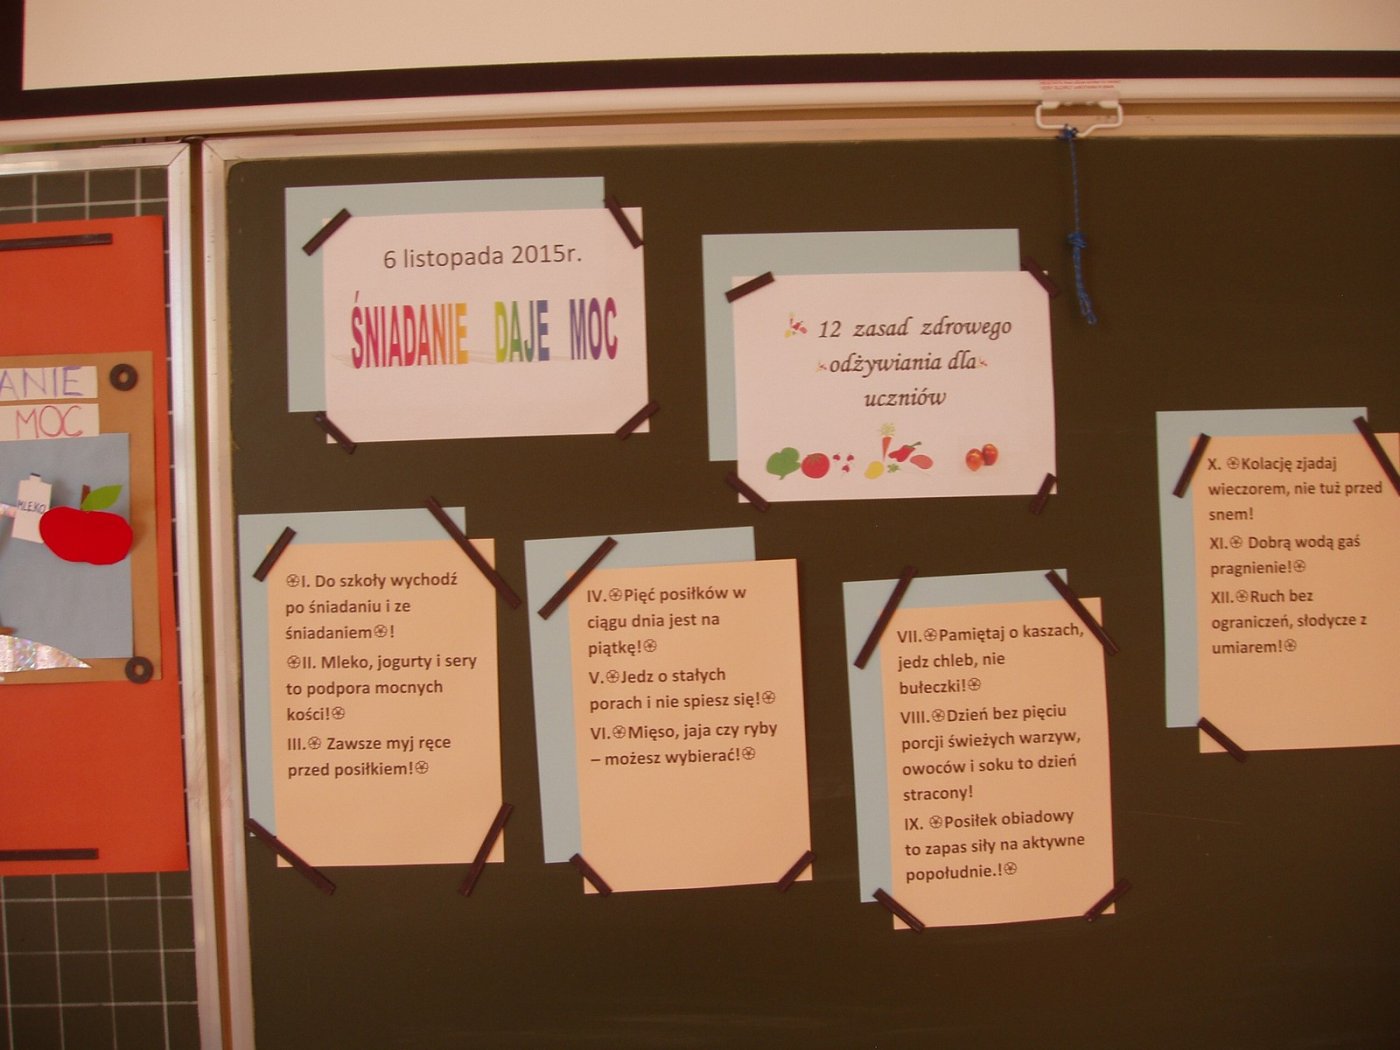 6 listopada 2015r.
ŚNIADANIE DAJE MOC
12 zasad zdrowego
odżywiania dla
uczniów
ANIE
MOC
MLEKO
I. Do szkoły wychodź
po śniadaniu i ze
śniadaniem!
II. Mleko, jogurty i sery
to podpora mocnych
kości!
III. Zawsze myj ręce
przed posiłkiem!
IV. Pięć posiłków w
ciągu dnia jest na
piątkę!
V. Jedz o stałych
porach i nie spiesz się!
VI. Mięso, jaja czy ryby
– możesz wybierać!
VII. Pamiętaj o kaszach,
jedz chleb, nie
bułeczki!
VIII. Dzień bez pięciu
porcji świeżych warzyw,
owoców i soku to dzień
stracony!
IX. Posiłek obiadowy
to zapas siły na aktywne
popołudnie.!
X. Kolację zjadaj
wieczorem, nie tuż przed
snem!
XI. Dobrą wodą gaś
pragnienie!
XII. Ruch bez
ograniczeń, słodycze z
umiarem!